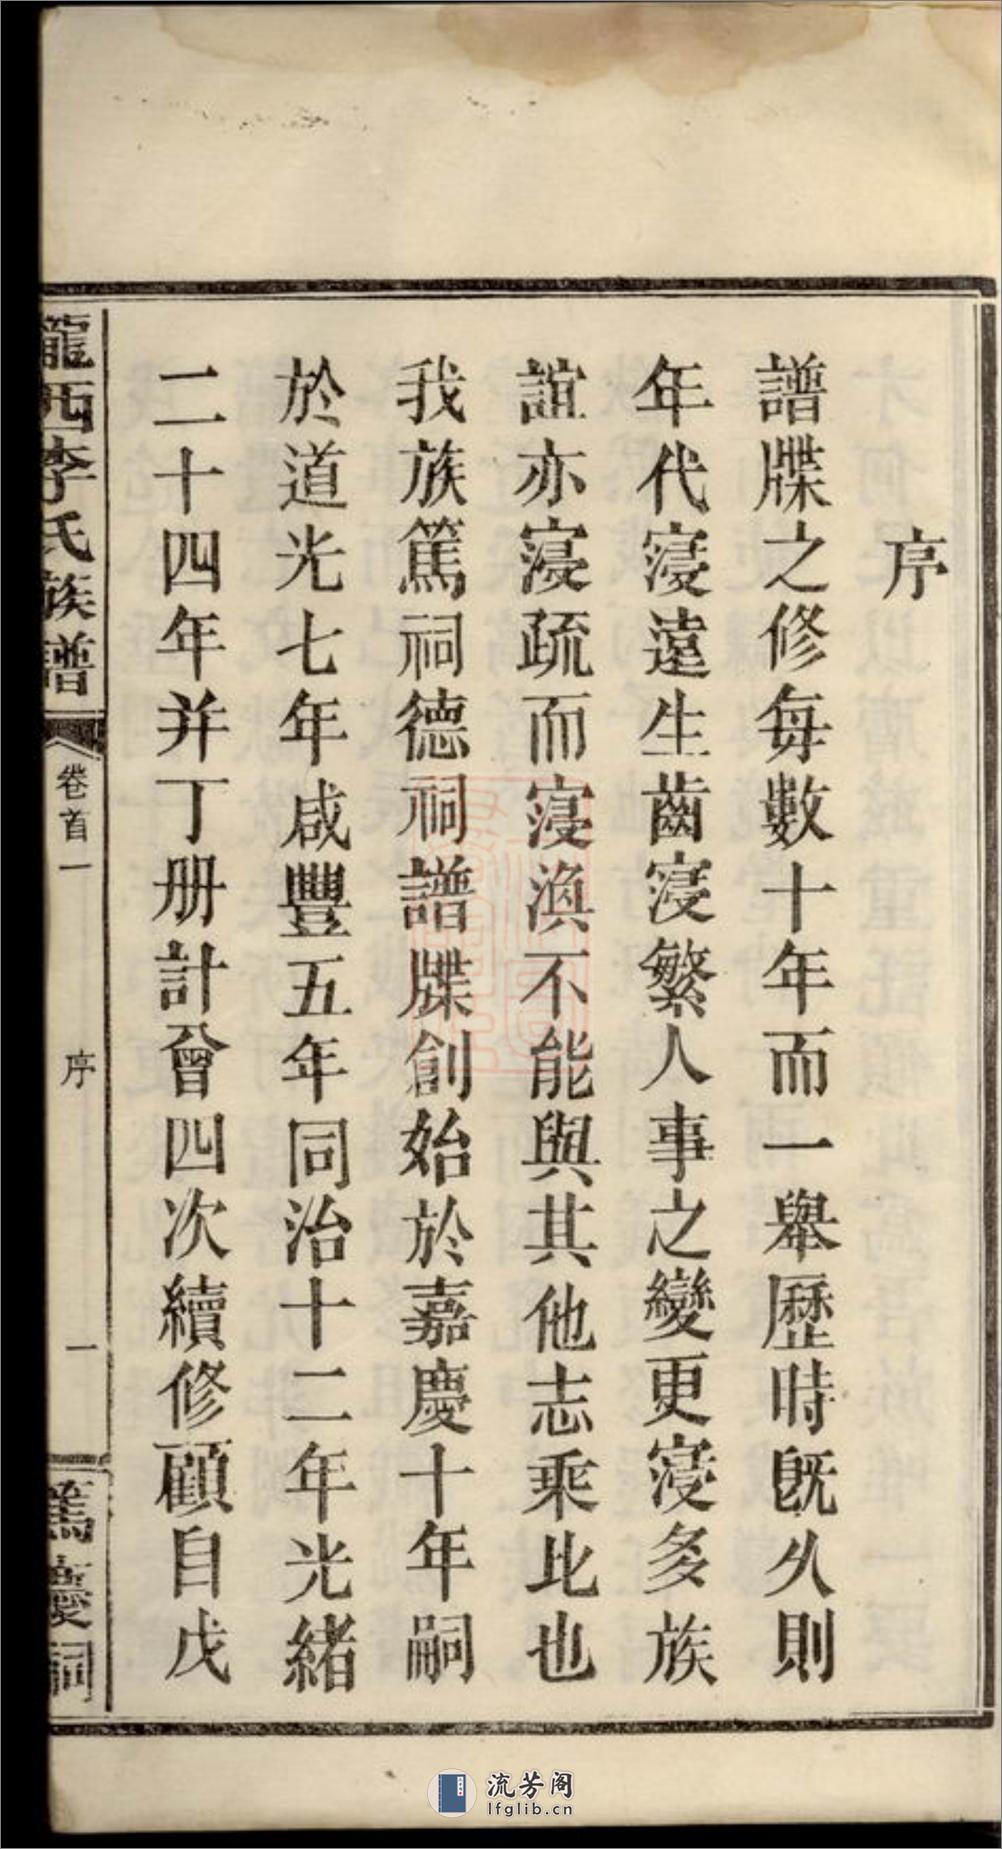 序
譜牒之修每數十年而一舉歷時既久則
年代寖遠生齒寖繁人事之變更寖多族
誼亦寖疏而寖渙不能與其他志乘比也
我族篤祠德祠譜牒創始於嘉慶十年嗣
於道光七年咸豐五年同治十二年光緒
二十四年并丁册計曾四次續修顧自戊
隴西李氏族譜
卷首一
序
一
篤慶祠
流芳阁
lfglib.cn